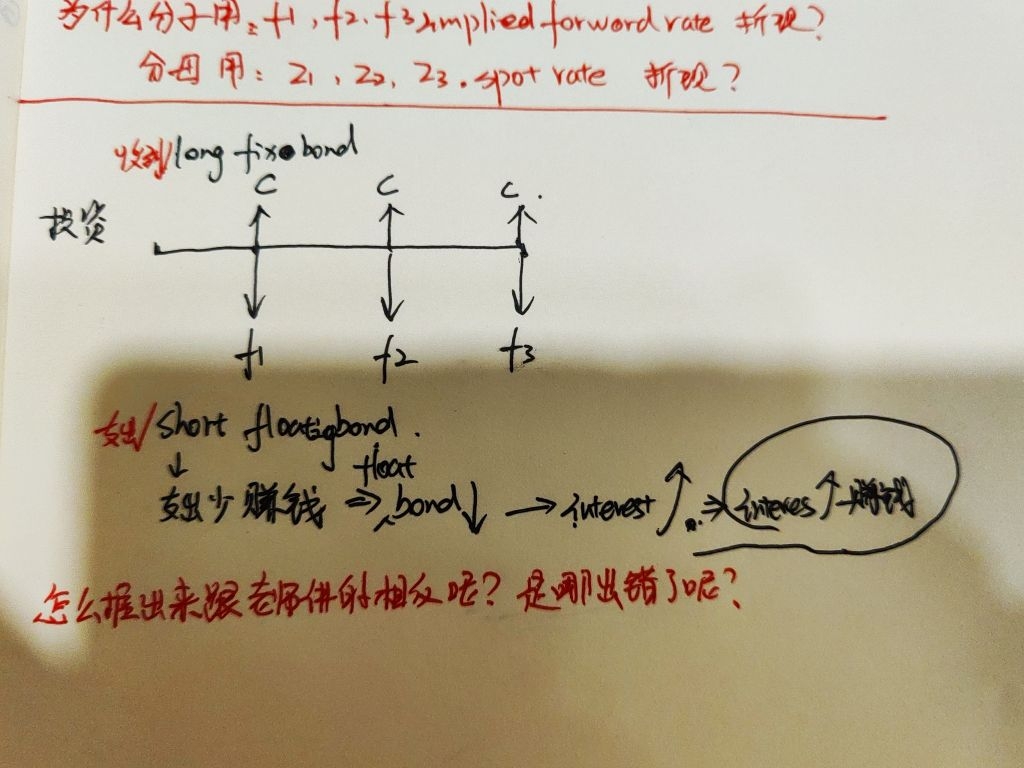 为什么分子用：f1，f2、f3 implied forword rate 折现？
分母用：Z1、Z2、Z3. spot rate 折现？
收到/long fixe bond
C C C.
投资
f1 f2 f3
支出/short floatigbond.
↓ float
支出少赚钱 ⇒ bond↓ → interest ↑ ⇒ interes↑赚钱
怎么推出来跟老师讲的相反呢？是哪出错了呢？